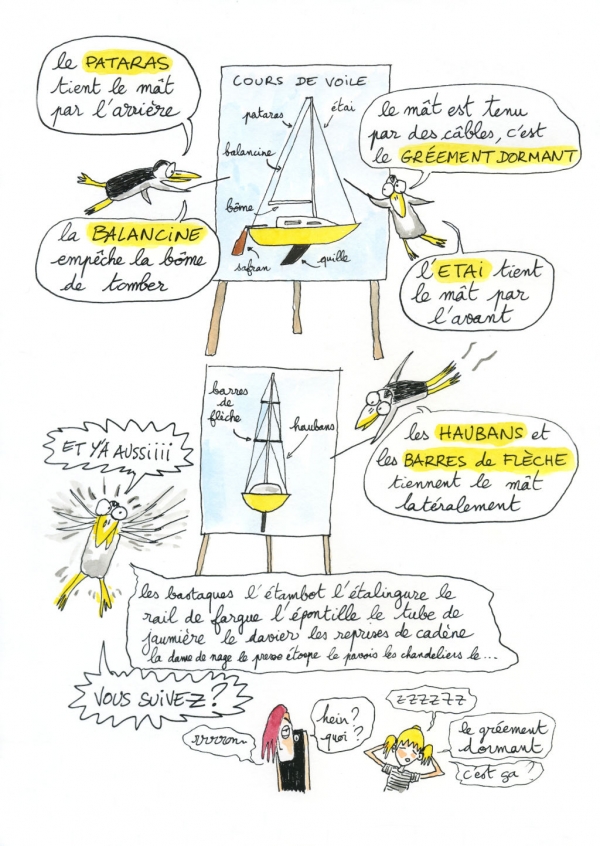 le PATARAS
tient le mât
par l'arrière
COURS DE VOILE
pataras
étai
balancine
bôme
safran
quille
le mât est tenu
par des câbles, c'est
le GRÉEMENT DORMANT
la BALANCINE
empêche la bôme
de tomber
l'ETAI tient
le mât par
l'avant
barres
de
flèche
haubans
les HAUBANS et
les BARRES de FLÈCHE
tiennent le mât
latéralement
ET Y'A AUSSIIII
les bastaques l'étambot l'étalingure le
rail de fargue l'épontille le tube de
jaumière le davier les reprises de cadène
la dame de nage le presse étoupe le pavois les chandeliers le...
VOUS SUIVEZ?
vrrron..
hein?
quoi?
ZZZZZZ
le gréement
dormant
c'est ça?